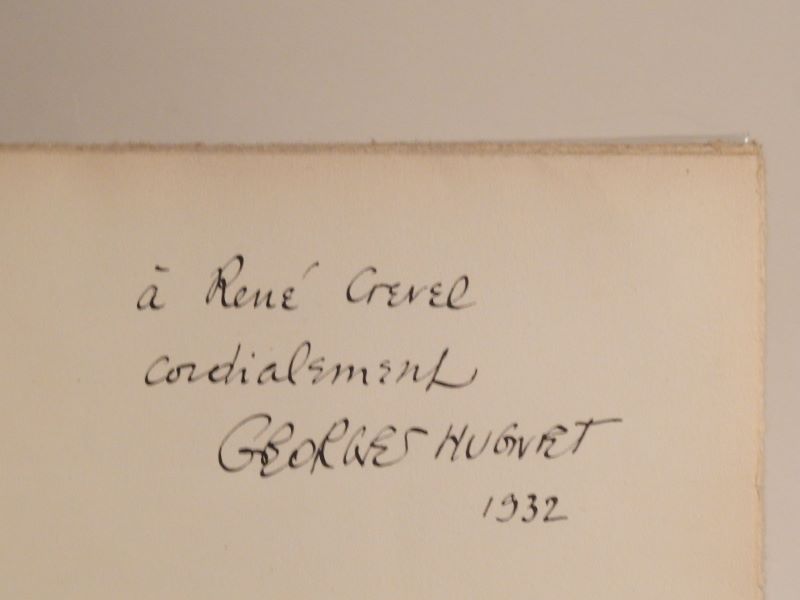 à René Crevel
cordialement
GEORGES HUGNET
1932